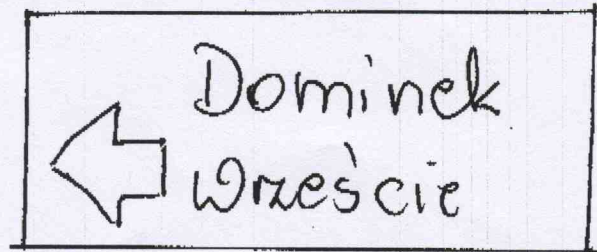 Dominek
Wrzeście